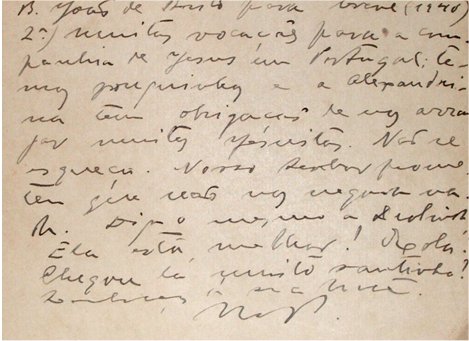 B. João de Brito para breve (1940)
2º) muitas vocações para a com-
panhia de Jesus em Portugal; te-
mos pouquinhos e a Alexandri-
na tem obrigação de nos arran-
jar muitos Jesuitas. Não se
esqueça. Nosso Senhor prome-
teu que não nos negava na-
da. Digo o mesmo a Deolinda
Ela está melhor? Oxalá!
Chegou lá muito santinha?